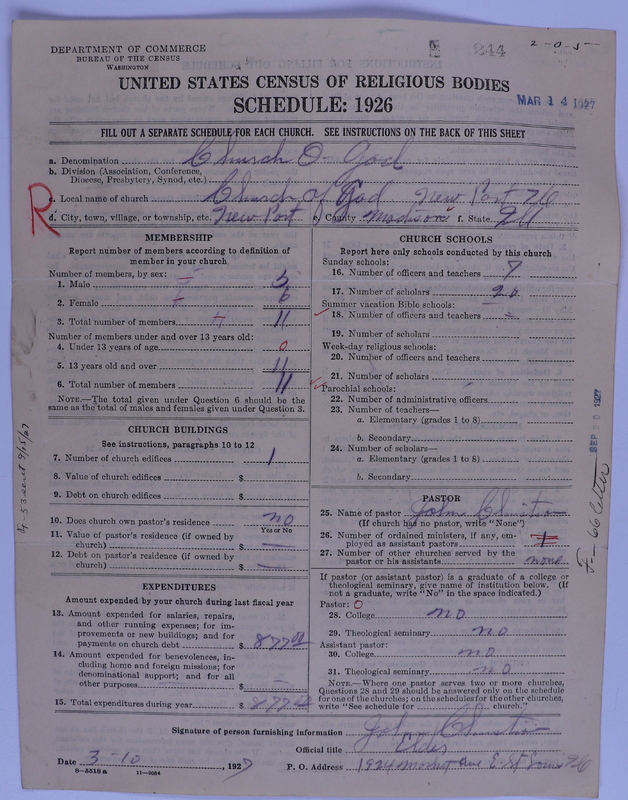 DEPARTMENT OF COMMERCE
BUREAU OF THE CENSUS
WASHINGTON
244
2-0-5-
UNITED STATES CENSUS OF RELIGIOUS BODIES
SCHEDULE: 1926
MAR 14 1927
FILL OUT A SEPARATE SCHEDULE FOR EACH CHURCH. SEE INSTRUCTIONS ON THE BACK OF THIS SHEET
a. Denomination Church O God
b. Division (Association, Conference, Diocese, Presbytery, Synod, etc.)
R
c. Local name of church Church of God New Port Ill
d. City, town, village, or township, etc. New Port e. County Madison f. State Ill
MEMBERSHIP
Report number of members according to definition of member in your church
Number of members, by sex:
1. Male 5
2. Female 6
3. Total number of members 11
Number of members under and over 13 years old:
4. Under 13 years of age 0
5. 13 years old and over 11
6. Total number of members 11
NOTE.—The total given under Question 6 should be the same as the total of males and females given under Question 3.
CHURCH BUILDINGS
See instructions, paragraphs 10 to 12
7. Number of church edifices 1
8. Value of church edifices $
9. Debt on church edifices $
10. Does church own pastor's residence no
Yes or No
11. Value of pastor's residence (if owned by church) $ —
12. Debt on pastor's residence (if owned by church) $ —
EXPENDITURES
Amount expended by your church during last fiscal year
13. Amount expended for salaries, repairs, and other running expenses; for improvements or new buildings; and for payments on church debt $
14. Amount expended for benevolences, including home and foreign missions; for denominational support; and for all other purposes $ —
15. Total expenditures during year $
CHURCH SCHOOLS
Report here only schools conducted by this church
Sunday schools:
16. Number of officers and teachers 7
17. Number of scholars 20
Summer vacation Bible schools:
18. Number of officers and teachers
19. Number of scholars
Week-day religious schools:
20. Number of officers and teachers
21. Number of scholars
Parochial schools:
22. Number of administrative officers
23. Number of teachers—
a. Elementary (grades 1 to 8)
b. Secondary
24. Number of scholars—
a. Elementary (grades 1 to 8)
b. Secondary
PASTOR
25. Name of pastor John
(If church has no pastor, write "None")
26. Number of ordained ministers, if any, employed as assistant pastors
27. Number of other churches served by the pastor or his assistants none
If pastor (or assistant pastor) is a graduate of a college or theological seminary, give name of institution below. (If not a graduate, write "No" in the space indicated.)
Pastor: O
28. College no
29. Theological seminary no
Assistant pastor:
30. College no
31. Theological seminary no
NOTE.—Where one pastor serves two or more churches, Questions 28 and 29 should be answered only on the schedule for one of the churches; on the schedules for the other churches, write "See schedule for ........ church."
Signature of person furnishing information John
Official title Elder
Date 3-10, 1927
P. O. Address 1924 Ave E. St Louis Ill
8—5518 a 11—9054